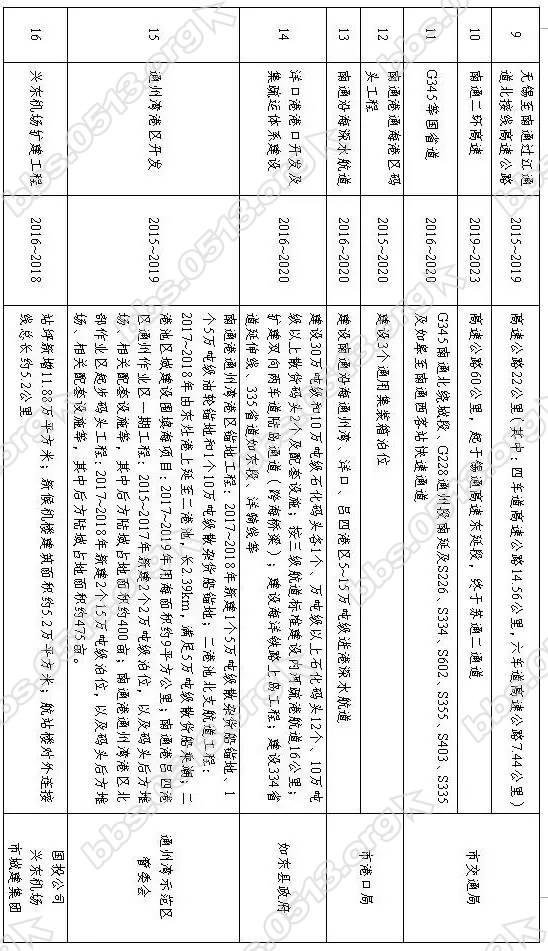 9
无锡至南通过江通
道北接线高速公路
2015~2019
高速公路22公里（其中：四车道高速公路14.56公里，六车道高速公路7.44公里）
市交通局
10
南通二环高速
2019~2023
高速公路60公里，起于锡通高速东延段，终于苏通二通道
11
G345等国省道
2016~2020
G345南通北绕城段、G228通州段南延及S226、S334、S602、S355、S403、S335
及如皋至南通西客站快速通道
12
南通港通海港区码
头工程
2015~2020
建设3个通用集装箱泊位
市港口局
13
南通沿海深水航道
2016~2020
建设南通沿海通州湾、洋口、吕四港区5~15万吨级进港深水航道
14
洋口港港口开发及
集疏运体系建设
2016~2020
建设30万吨级和10万吨级石化码头各1个、万吨级以上石化码头12个、10万吨
级以上散货码头2个及配套设施，按三级航道标准建设内河疏港航道16公里；
扩建双向两车道陆岛通道（跨海桥梁）；建设海洋铁路上岛工程；建设334省
道延伸线、335省道如东段、洋骑线等
如东县政府
15
通州湾港区开发
2015~2019
南通港通州湾港区锚地工程：2017~2018年新建1个5万吨级散杂货船锚地、1
个5万吨级油轮锚地和1个10万吨级散杂货船锚地；二港池北支航道工程：
2017~2018年由东灶港上延至二港池，长2.39km，满足5万吨级散货船乘潮；二
港池区域建设围填海项目：2017~2019年用海面积约9平方公里；南通港吕四港
区通州作业区一期工程：2015~2017年新建2个2万吨级泊位，以及码头后方堆
场、相关配套设施等，其中后方陆域占地面积约400亩；南通港通州湾港区北
部作业区起步码头工程：2017~2018年新建2个15万吨级泊位，以及码头后方堆
场、相关配套设施等，其中后方陆域占地面积约475亩。
通州湾示范区
管委会
16
兴东机场扩建工程
2016~2018
站坪新增11.88万平方米；新候机楼建筑面积约5.2万平方米；航站楼对外连接
线总长约5.2公里
国投公司
兴东机场
市城建集团
bbs.0513.org